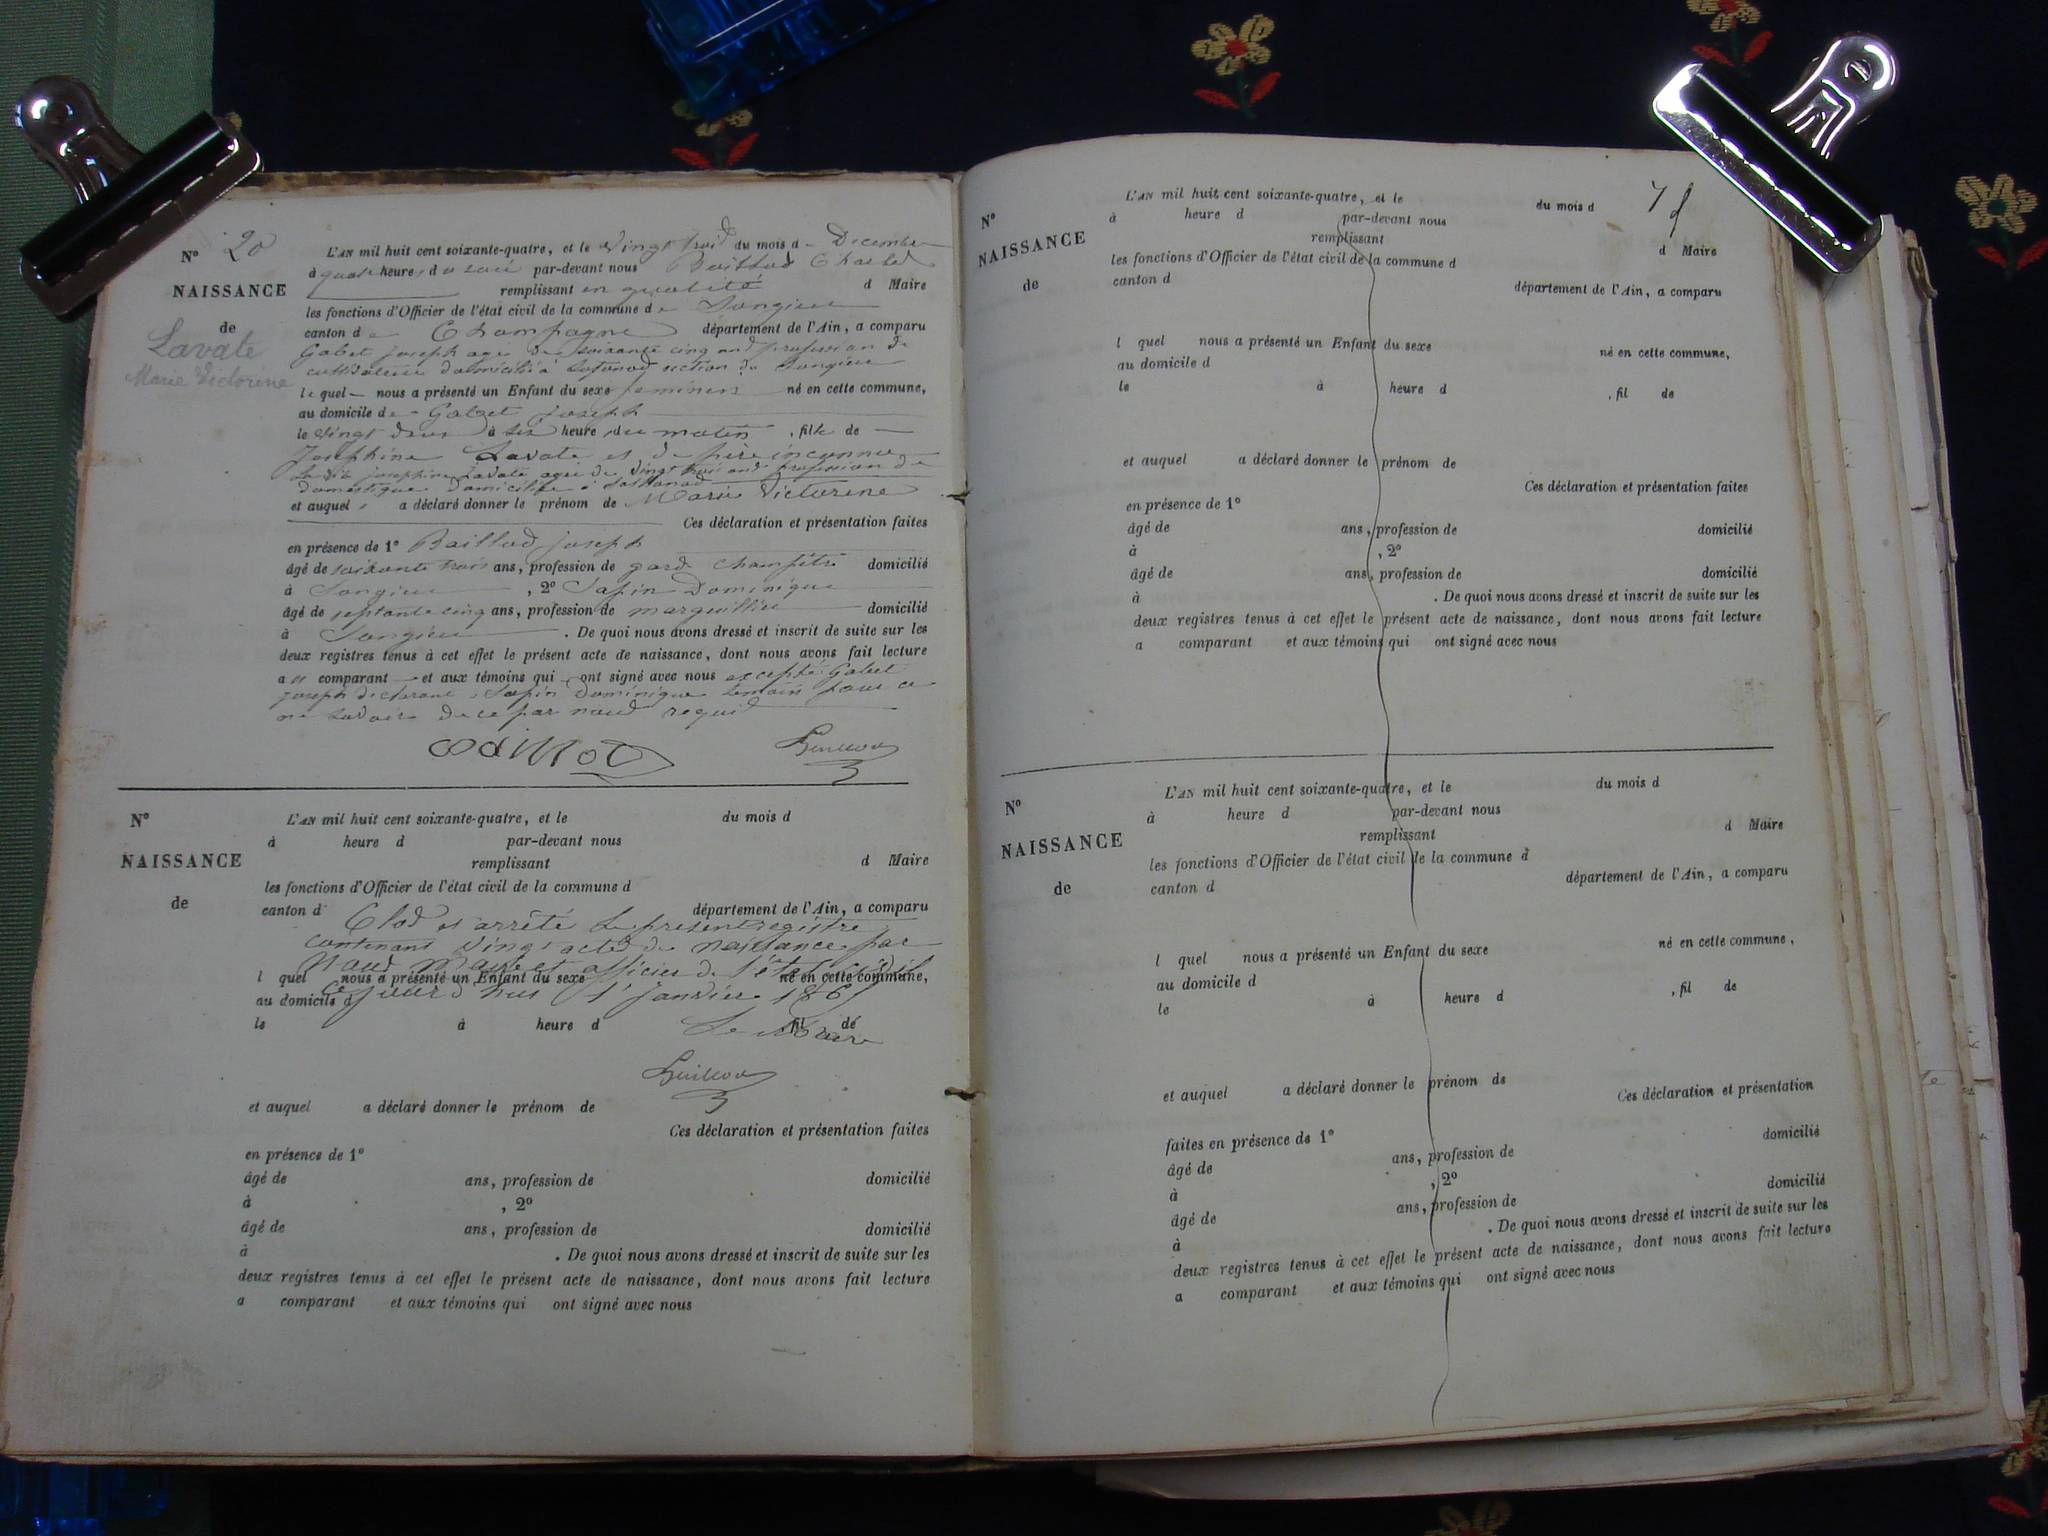 N° 20
NAISSANCE
de
Lavate
Marie Victorine
L'AN mil huit cent soixante-quatre, et le Vingt trois du mois de Décembre
à quatre heures du soir par-devant nous Baillod Charles
remplissant en qualité d Maire
les fonctions d'Officier de l'état civil de la commune de Songieu
canton de Champagne département de l'Ain, a comparu
Gabet joseph agé de soixante cinq ans profession de
cultivateur domicilié à section de Songieu
le quel nous a présenté un Enfant du sexe feminin né en cette commune,
au domicile de Gabet joseph
le vingt deux à six heure du matin , fille de
Josephine Lavate et de père inconnu
La dite josephine Lavate agée de vingt trois ans profession de
domestique domiciliée à
et auquel a déclaré donner le prénom de Marie Victorine
Ces déclaration et présentation faites
en présence de 1° Baillod joseph
âgé de soixante trois ans, profession de gard champêtre domicilié
à Songieu , 2° Sapin Dominique
âgé de septante cinq ans, profession de marguillier domicilié
à Songieu . De quoi nous avons dressé et inscrit de suite sur les
deux registres tenus à cet effet le présent acte de naissance, dont nous avons fait lecture
au comparant et aux témoins qui ont signé avec nous excepté Gabet
joseph declarant, Sapin Dominique temoin pour ne
savoir de ce par nous requis
N°
NAISSANCE
de
L'AN mil huit cent soixante-quatre, et le du mois d
à heure d par-devant nous
remplissant d Maire
les fonctions d'Officier de l'état civil de la commune d
canton d département de l'Ain, a comparu
Clos et arrêté le present registre
contenant vingt actes de naissance par
nous Maire et officier de l'état civil
l quel nous a présenté un Enfant du sexe né en cette commune,
ce jour d'hui 1er janvier 1865
au domicile d
le à heure d fil de
Le Maire
et auquel a déclaré donner le prénom de
Ces déclaration et présentation faites
en présence de 1°
âgé de ans, profession de domicilié
à , 2°
âgé de ans, profession de domicilié
à . De quoi nous avons dressé et inscrit de suite sur les
deux registres tenus à cet effet le présent acte de naissance, dont nous avons fait lecture
a comparant et aux témoins qui ont signé avec nous
7
N°
NAISSANCE
de
L'AN mil huit cent soixante-quatre, et le du mois d
à heure d par-devant nous
remplissant d Maire
les fonctions d'Officier de l'état civil de la commune d
canton d département de l'Ain, a comparu
l quel nous a présenté un Enfant du sexe né en cette commune,
au domicile d
le à heure d , fil de
et auquel a déclaré donner le prénom de
Ces déclaration et présentation faites
en présence de 1°
âgé de ans, profession de domicilié
à , 2°
âgé de ans, profession de domicilié
à . De quoi nous avons dressé et inscrit de suite sur les
deux registres tenus à cet effet le présent acte de naissance, dont nous avons fait lecture
a comparant et aux témoins qui ont signé avec nous
N°
NAISSANCE
de
L'AN mil huit cent soixante-quatre, et le du mois d
à heure d par-devant nous
remplissant d Maire
les fonctions d'Officier de l'état civil de la commune d
canton d département de l'Ain, a comparu
l quel nous a présenté un Enfant du sexe né en cette commune,
au domicile d
le à heure d , fil de
et auquel a déclaré donner le prénom de
Ces déclaration et présentation
faites en présence de 1°
âgé de ans, profession de domicilié
à , 2°
âgé de ans, profession de domicilié
à . De quoi nous avons dressé et inscrit de suite sur les
deux registres tenus à cet effet le présent acte de naissance, dont nous avons fait lecture
a comparant et aux témoins qui ont signé avec nous